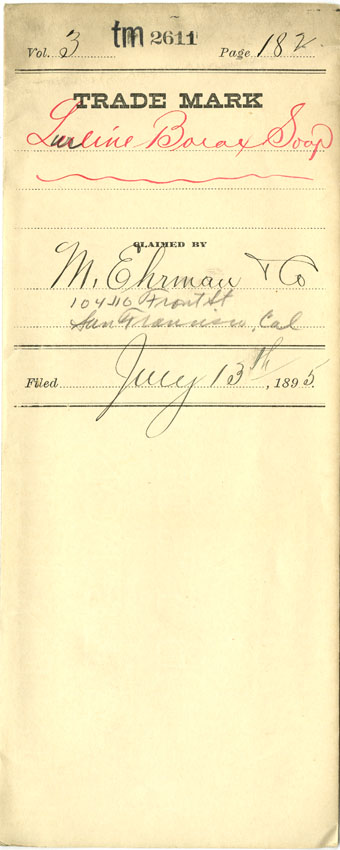 tm 2611
Vol. 3 Page 182
TRADE MARK
Lurline Borax Soap
CLAIMED BY
M. Ehrman & Co
104-110 Front St
San Francisco, Cal
Filed July 13th, 1895.